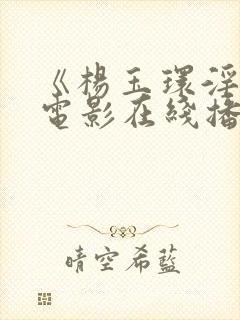 《楊玉環淫
電影在綫播
晴空希藍